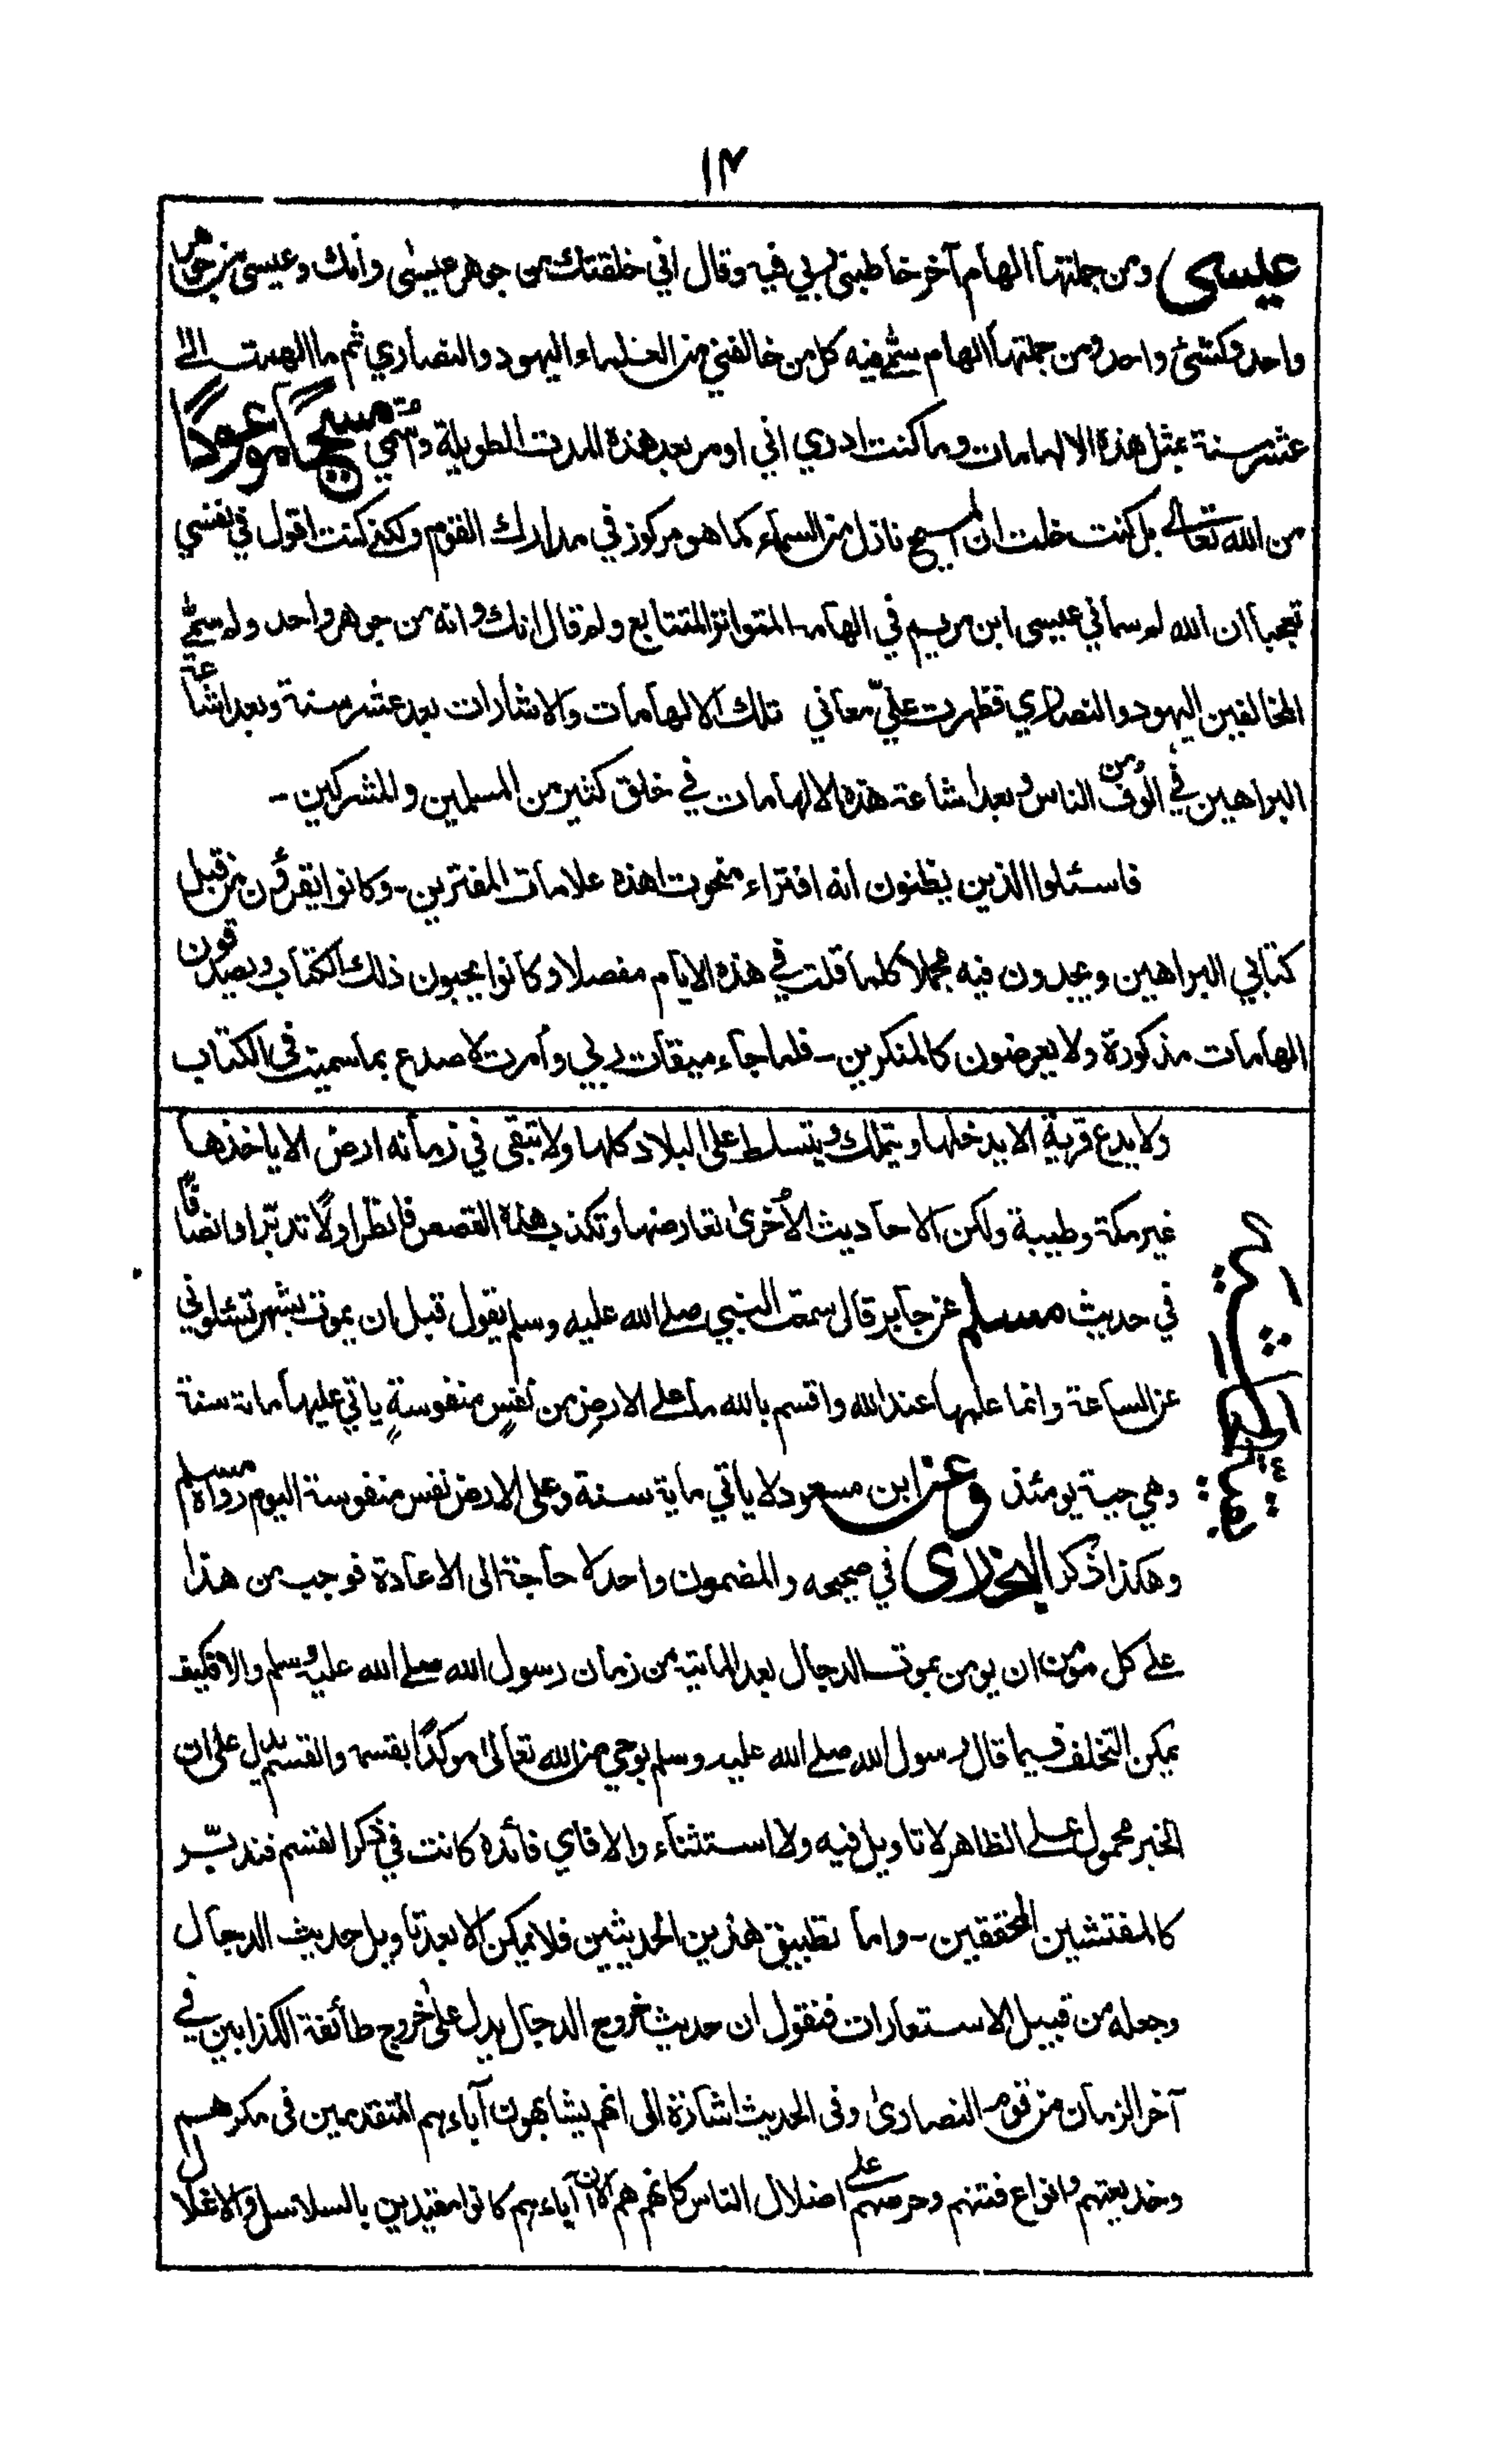 ١٣
عيسى ومن جملتها الهام آخر خاطبني ربي فيه وقال اني خلقتك من جوهر عيسى وانك وعيسى من جوهر
واحد وكشئ واحد ومن جملتها الهام سمّي فيه كل من خالفني من العلماء اليهود والنصاري ثم ما الهمت الى
عشر سنة بمثل هذه الالهامات وما كنت ادري اني اومر بعد هذه المدت الطويلة واسمّي مسيحًا موعودًا
من الله تعالى بل كنت خلت ان المسيح نازل من السماء كما هو مركوز في مدارك القوم ولكن كنت اقول في نفسي
تعجبا ان الله لم سماني عيسى ابن مريم في الهامه المتواتر المتتابع ولم قال انك وانه من جوهر واحد ولم سمّي
المخالفين اليهود والنصاري فظهرت عليّ معاني تلك الالهامات والاشارات بعد عشر سنة وبعد اشاعة
البراهين في الوف من الناس وبعد اشاعة هذه الالهامات في خلق كثير من المسلمين والمشركين -
فاسئلوا الذين يظنون انه افتراء منحوت اهذه علامات المفترين - وكانوا يقرؤن من قبل
كتابي البراهين ويجدون فيه مجملا كلما قلت في هذه الايام مفصلا وكانوا يحبون ذلك الكتاب ويصدقون
الهامات مذكورة ولا يعرضون كالمنكرين - فلما جاء ميقات ربي وأمرت لاصدع بما سميت في الكتاب
ولا يدع قرية الا يدخلها ويتملك ويتسلط على البلاد كلها ولا تبقى في زمانه ارض الا ياخذها
غير مكة وطيبة ولكن الاحاديث الأخرى تعارضها وتكذب هذه القصص فانظر اولًا تدبّرا وانصافًا
في حديث مسلم عن جابر قال سمعت النبي صلى الله عليه وسلم يقول قبل ان يموت بشهر تسئلوني
عن الساعة وانما علمها عند الله واقسم بالله ما على الارض من نفسٍ منفوسةٍ ياتي عليها مائة سنة
وهي حية يومئذ وعن ابن مسعود لا ياتي ماية سنة وعلى الارض نفس منفوسة اليوم رواه مسلم
وهكذا ذكر البخاري في صحيحه والمضمون واحد لا حاجة الى الاعادة فوجب من هذا
على كل مؤمن ان يومن بموت الدجال بعد الماية من زمان رسول الله صلى الله عليه وسلم والا فكيف
يمكن التخلف فيما قال رسول الله صلى الله عليه وسلم بوحي من الله تعالى موكدًا بقسمه والقسم يدل على ان
الخبر محمول على الظاهر لا تاويل فيه ولا استثناء والا فاي فائدة كانت في ذكر القسم فتدبّر
كالمفتشين المحققين - واما تطبيق هذين الحديثين فلا يمكن الا بعد تاويل حديث الدجال
وجعله من قبيل الاستعارات فنقول ان حديث خروج الدجال يدل على خروج طائفة الكذابين في
آخر الزمان من قوم النصارى وفي الحديث اشارة الى انهم يشابهون آباءهم المتقدمين في مكرهم
وخديعتهم وانواع فتنهم وحرصهم على اضلال الناس كانهم هم الا ان آباءهم كانوا مقيدين بالسلاسل والاغلال